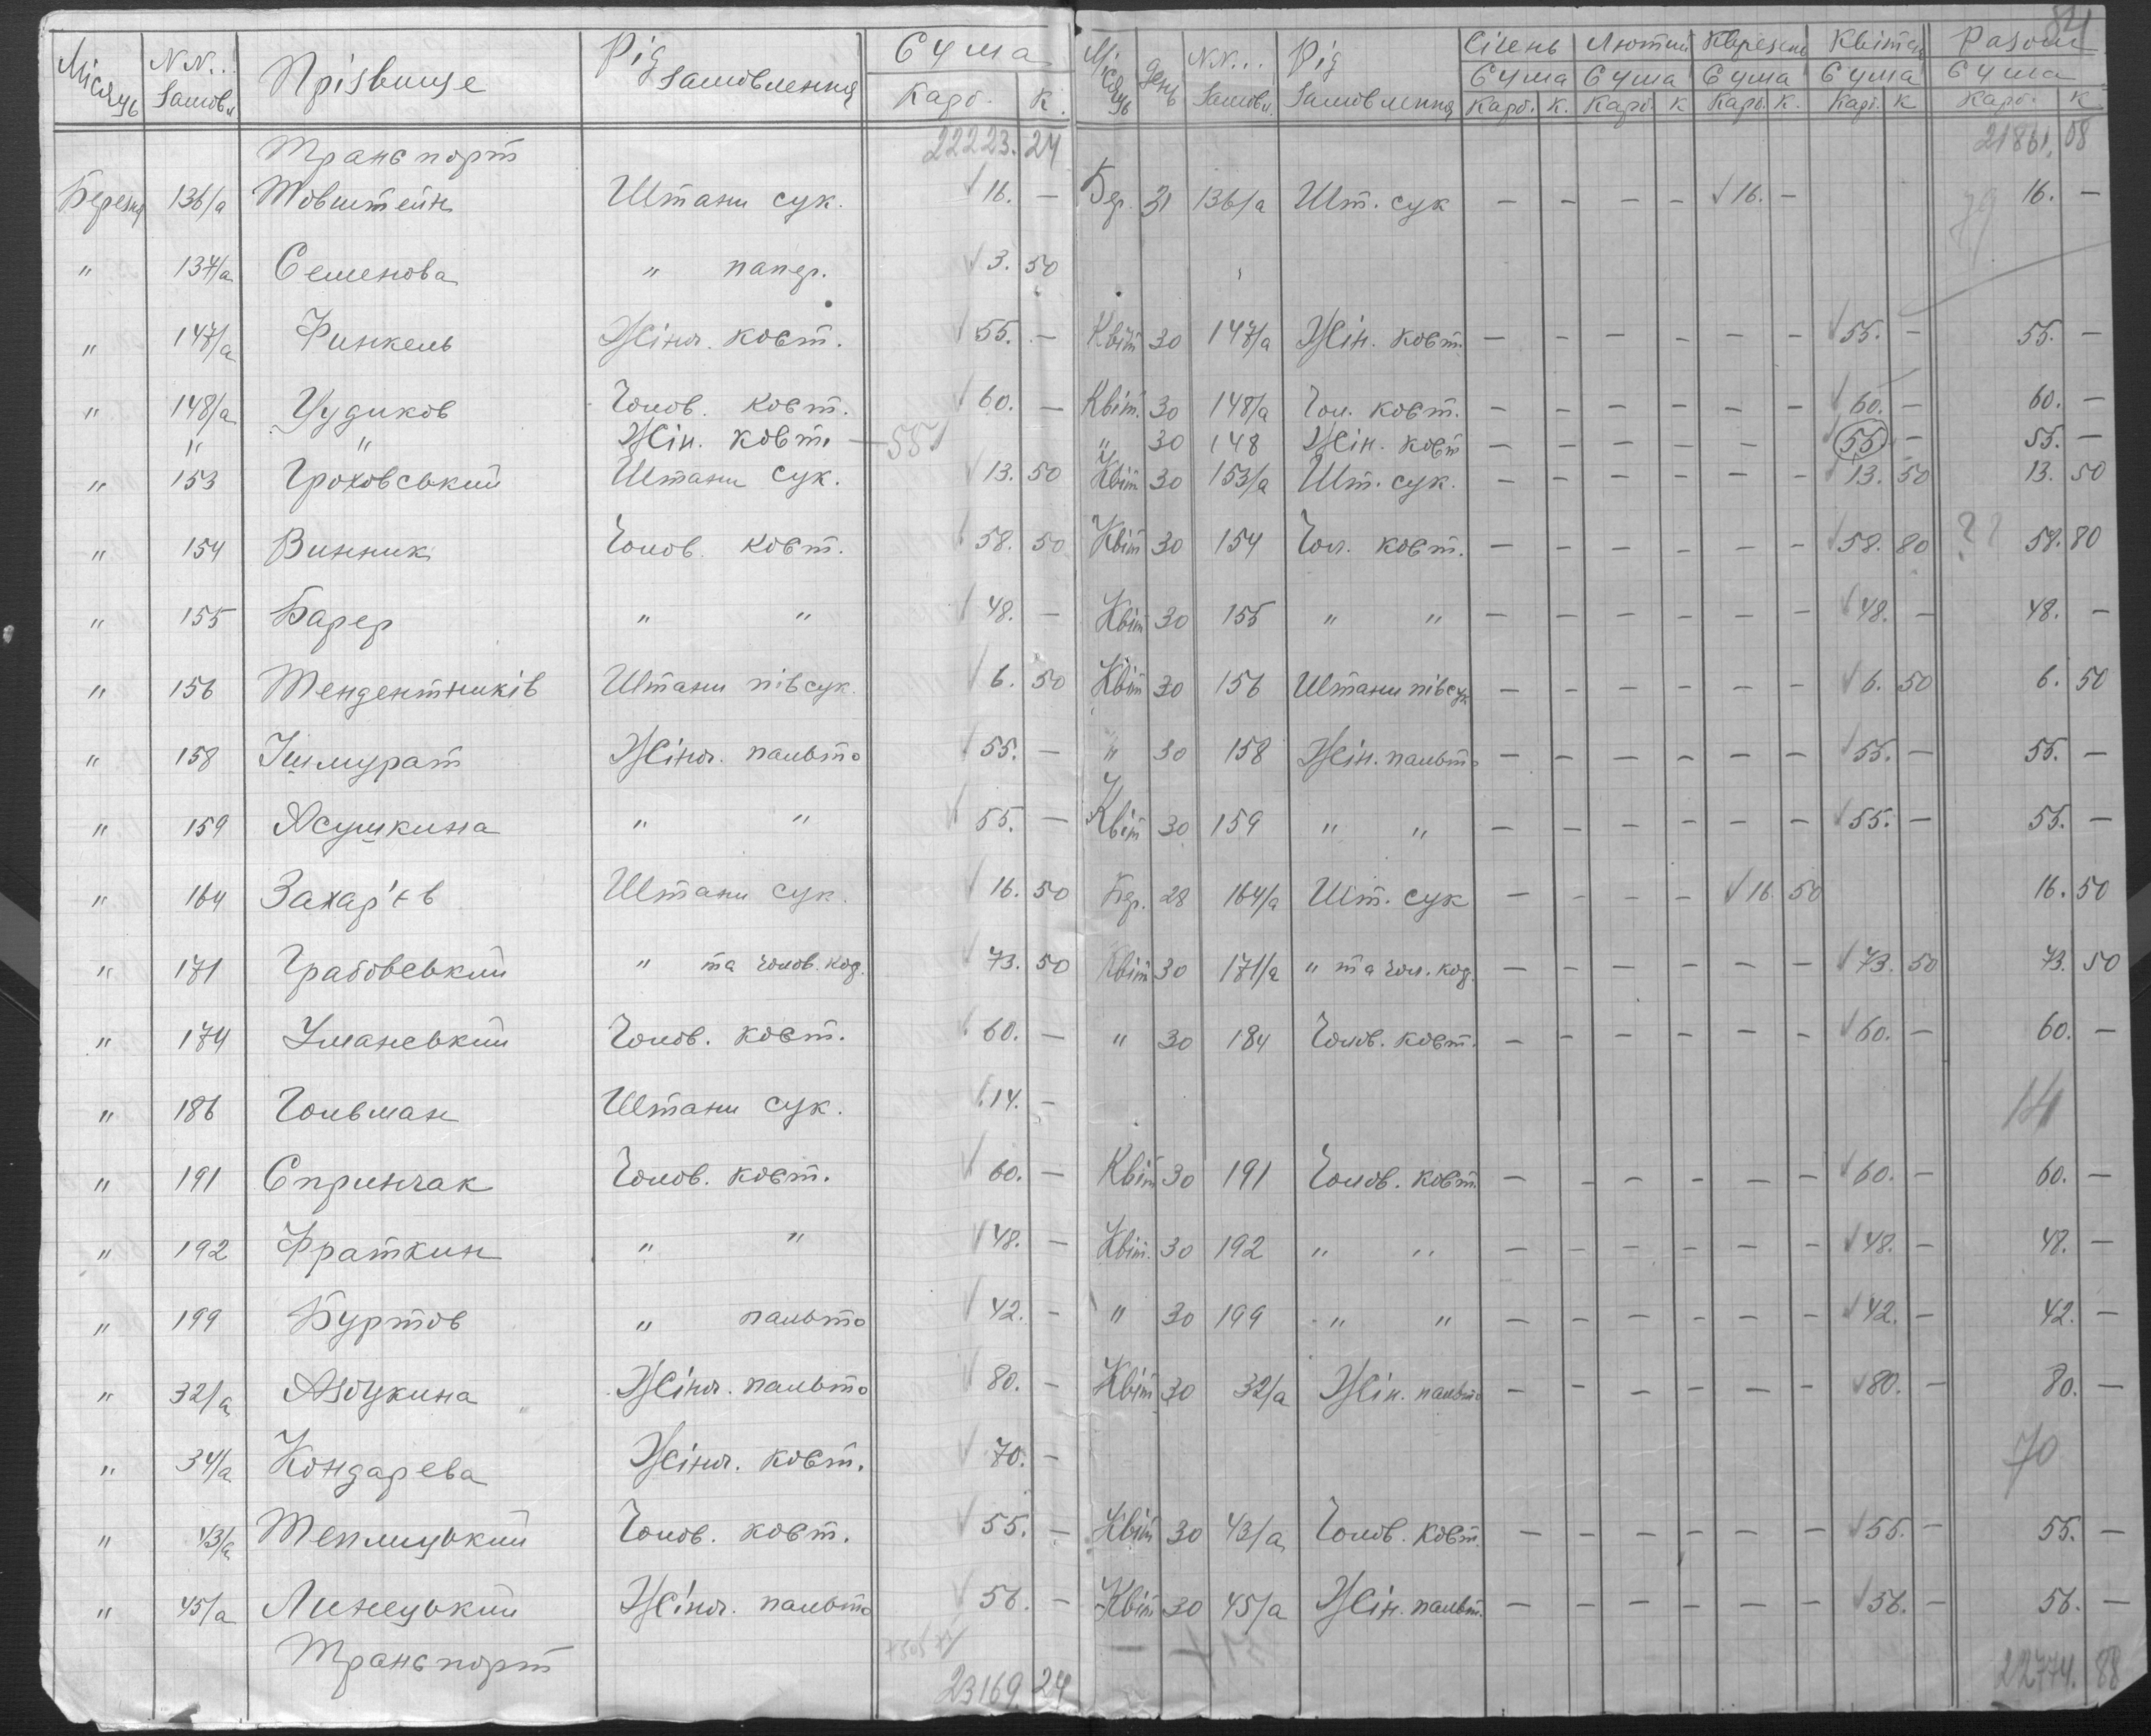 84
Місяць N N... Замовл Прізвище Рід Замовлення Сума Карб. К.
Місяць День NN... Замовл. Рід Замовлення Січень Сума Карб. К. Лютий Сума Карб. К Сума Карб. К. Квітень Сума Карб. К Разом Сума Карб. К
Транспорт 22223. 24 21861. 08
Березня 136/а Товштейн Штани сук. 16. — Бер. 31 136/а Шт. сук — — — — 16. — 16. —
" 137/а Семенова " папер. 3. 50
" 147/а Финкель Жіноч. кост. 55. — Квіт 30 147/а Жін. кост. — — — — — — 55. — 55. —
" 148/а Чудиков Чолов. кост. 60. — Квіт. 30 148/а Чол. кост. — — — — — — 60. — 60. —
" " Жін. кост. — 55 " 30 148 Жін. кост — — — — — — 55 — 55. —
" 153 Гроховський Штани сук. 13. 50 Квіт 30 153/а Шт. сук. — — — — — — 13. 50 13. 50
" 154 Винник Чолов. кост. 58. 50 Квіт 30 154 Чол. кост. — — — — — — 58. 80 ?? 58. 80
" 155 Барер " " 48. — Квіт 30 155 " " — — — — — — 48. — 48. —
" 156 Тендентників Штани півсук. 6. 50 Квіт 30 156 Штани півсук — — — — — — 6. 50 6. 50
" 158 Ішмурат Жіноч. пальто 55. — " 30 158 Жін. пальто — — — — — — 55. — 55. —
" 159 Асушкина " " 55. — Квіт 30 159 " " — — — — — — 55. — 55. —
" 164 Захар'єв Штани сук. 16. 50 Бер. 28 164/а Шт. сук — — — — 16. 50 16. 50
" 171 Грабовський " та чолов. код. 73. 50 Квіт 30 171/а " та чол. код. — — — — — — 73. 50 73. 50
" 174 Уманський Чолов. кост. 60. — " 30 184 Чолов. кост. — — — — — — 60. — 60. —
" 186 Гольман Штани сук. 14. — 14
" 191 Спринчак Чолов. кост. 60. — Квіт 30 191 Чолов. кост. — — — — — — 60. — 60. —
" 192 Фраткин " " 48. — Квіт. 30 192 " " — — — — — — 48. — 48. —
" 199 Буртов " пальто 42. — " 30 199 " " — — — — — — 42. — 42. —
" 32/а Азбукина Жіноч. пальто 80. — Квіт 30 32/а Жін. пальто — — — — — — 80. — 80. —
" 34/а Кондарева Жіноч. кост. 70. — 70
" 43/а Теплицький Чолов. кост. 55. — Квіт 30 43/а Чолов. кост. — — — — — — 55. — 55. —
" 45/а Линецький Жіноч. пальто 56. — Квіт 30 45/а Жін. пальт. — — — — — — 56. — 56. —
Транспорт 23169 24 22774. 88